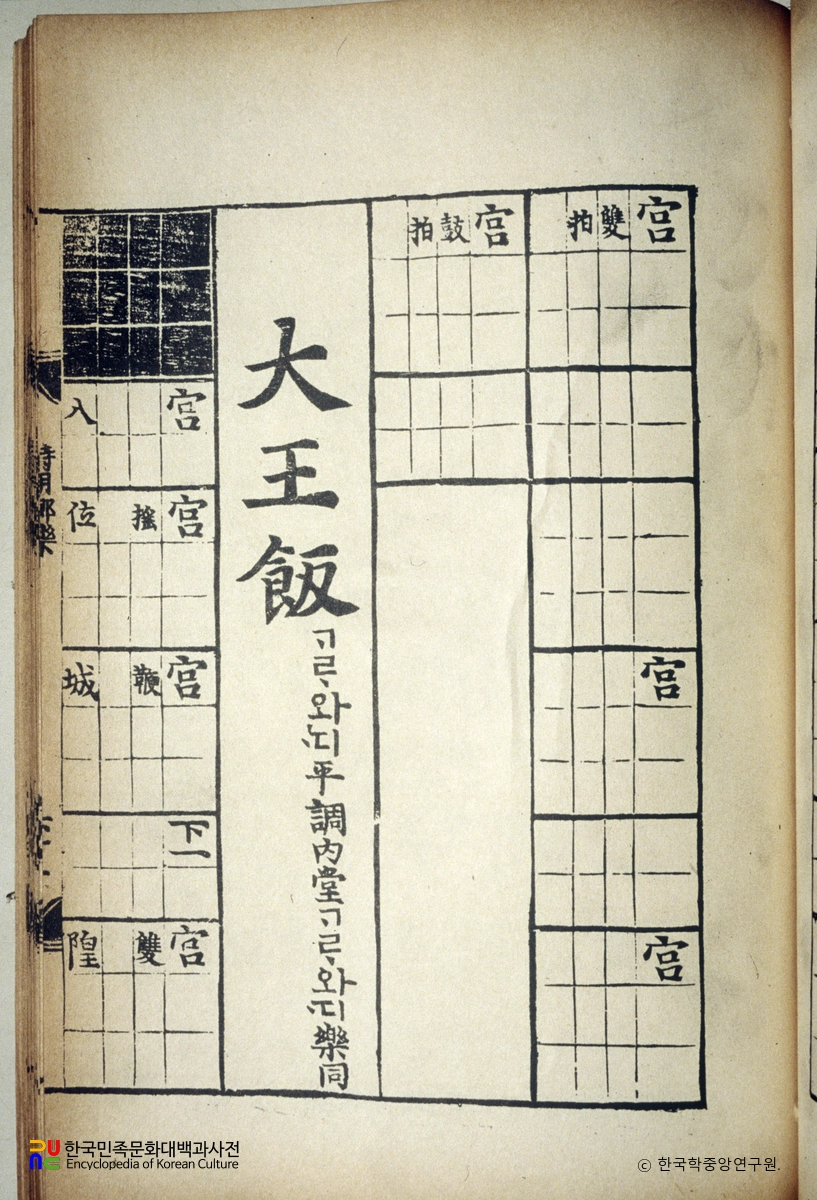 宮 宮 宮
雙
拍
宮
鼓
拍
大王飯 ᄀᆞᄅᆞ와디 平調 內堂ᄀᆞᄅᆞ와디樂同
宮 宮 宮 下一 宮
搖 鞭 雙
八位城隍
한국민족문화대백과사전
Encyclopedia of Korean Culture
ⓒ 한국학중앙연구원.